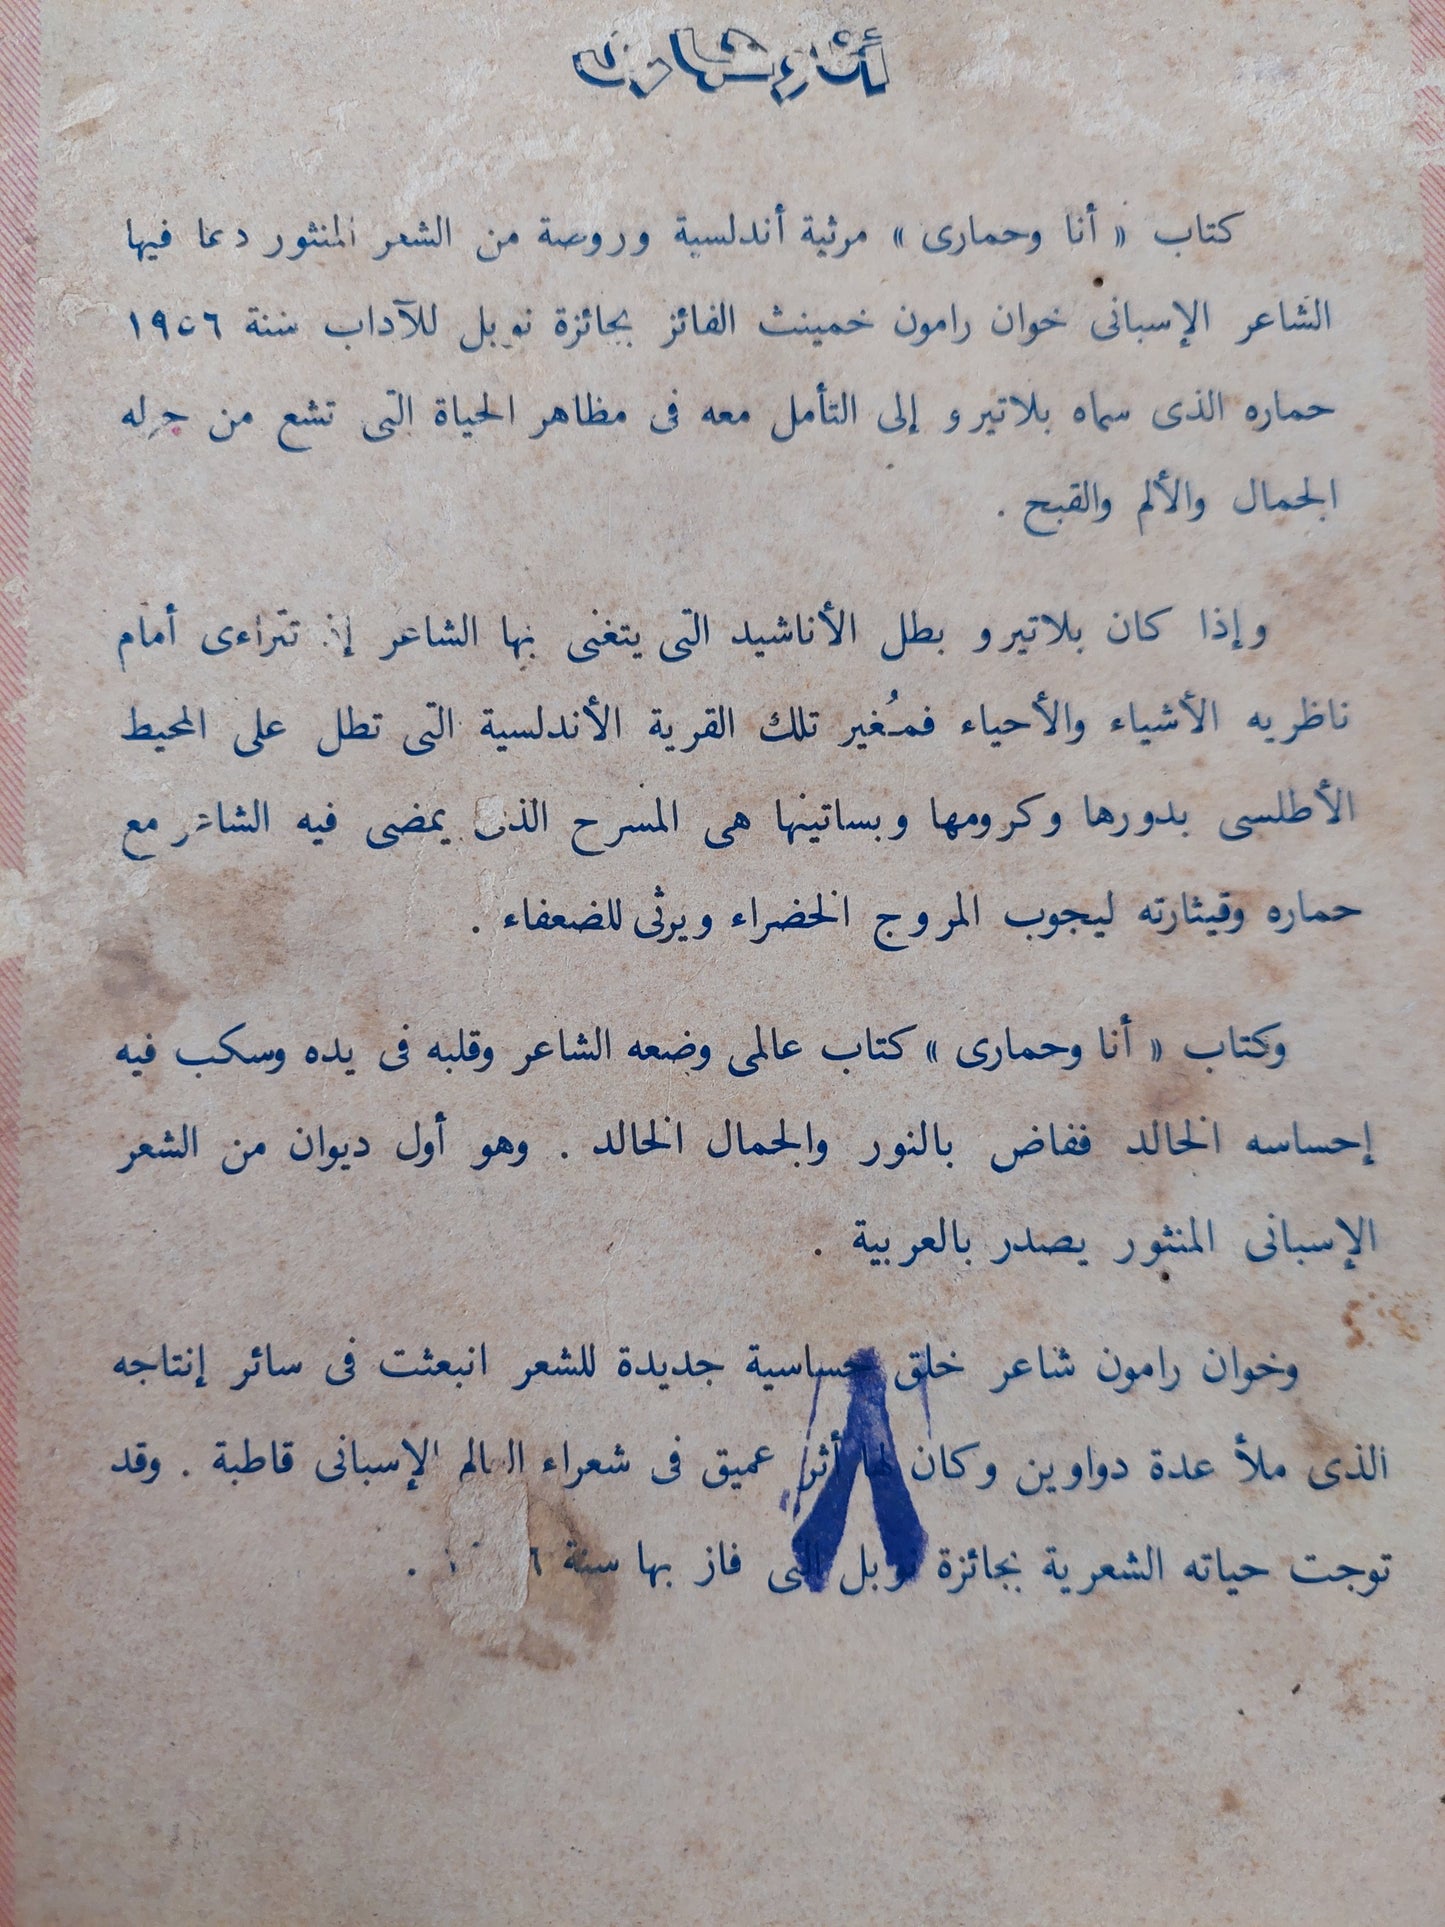 كتاب « أنا وحمارى » مرثية أندلسية وروضة من الشعر المنثور دعا فيها
الشاعر الإسبانى خوان رامون خمينث الفائز بجائزة نوبل للآداب سنة ١٩٥٦
حماره الذى سماه بلاتيرو إلى التأمل معه فى مظاهر الحياة التى تشع من حوله
الجمال والألم والقبح .
وإذا كان بلاتيرو بطل الأناشيد التى يتغنى بها الشاعر إذ تتراءى أمام
ناظريه الأشياء والأحياء فمُغير تلك القرية الأندلسية التى تطل على المحيط
الأطلسى بدورها وكرومها وبساتينها هى المسرح الذى يمضى فيه الشاعر مع
حماره وقيثارته ليجوب المروج الخضراء ويرثى للضعفاء .
وكتاب « أنا وحمارى » كتاب عالمى وضعه الشاعر وقلبه فى يده وسكب فيه
إحساسه الخالد ففاض بالنور والجمال الخالد . وهو أول ديوان من الشعر
الإسبانى المنثور يصدر بالعربية .
وخوان رامون شاعر خلق حساسية جديدة للشعر انبعثت فى سائر إنتاجه
الذى ملأ عدة دواوين وكان لها أثر عميق فى شعراء العالم الإسبانى قاطبة . وقد
توجت حياته الشعرية بجائزة نوبل التى فاز بها سنة .